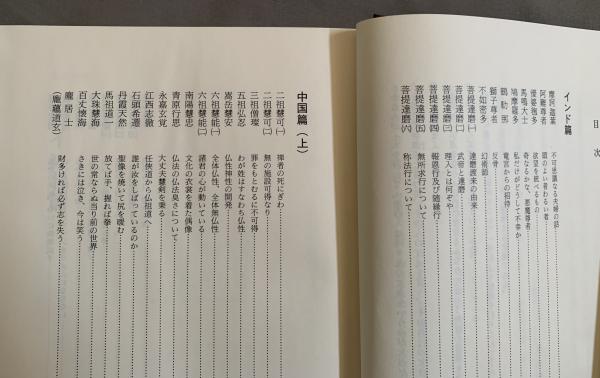 目次
インド篇
摩訶迦葉 不可思議なる夫婦の話
阿難尊者 頭のよい者わるい者
優婆毱多 欲望を征するもの
馬鳴大士 奇なるかな、悪魔尊者
鳩摩羅多 私だけがどうして不幸か
鶴勒那 竜宮からの招待
獅子尊者 反骨
不如密多 幻術師
菩提達磨(一) 達磨渡来の由来
菩提達磨(二) 武帝と達磨
菩提達磨(三) 理入とは何ぞや
菩提達磨(四) 報怨行及び随縁行
菩提達磨(五) 無所求行について
菩提達磨(六) 称法行について
中国篇(上)
二祖慧可(一) 禅者の死にぎわ
二祖慧可(二) 無の施設可得なり
三祖僧璨 罪をもとむるに不可得
五祖弘忍 わが姓はすなわち仏性
嵩岳慧安 仏性神性の開発
六祖慧能(一) 全体仏性、全体無仏性
六祖慧能(二) 諸君の心が動いている
南陽慧忠 文化の衣裳を着た偶像
青原行思 仏法の仏法臭さについて
永嘉玄覚 大丈夫慧剣を秉る
江西志徹 任侠道から仏祖道へ
石頭希遷 誰が汝をしばっているのか
丹霞天然 聖像を焼いて尻を暖む
馬祖道一 放てば手、握れば拳
大珠慧海 世の常ならぬ当り前の世界
百丈懐海 さきには泣き、今は笑う
龐居士 財多ければ必ず志を失う
(龐蘊道玄)